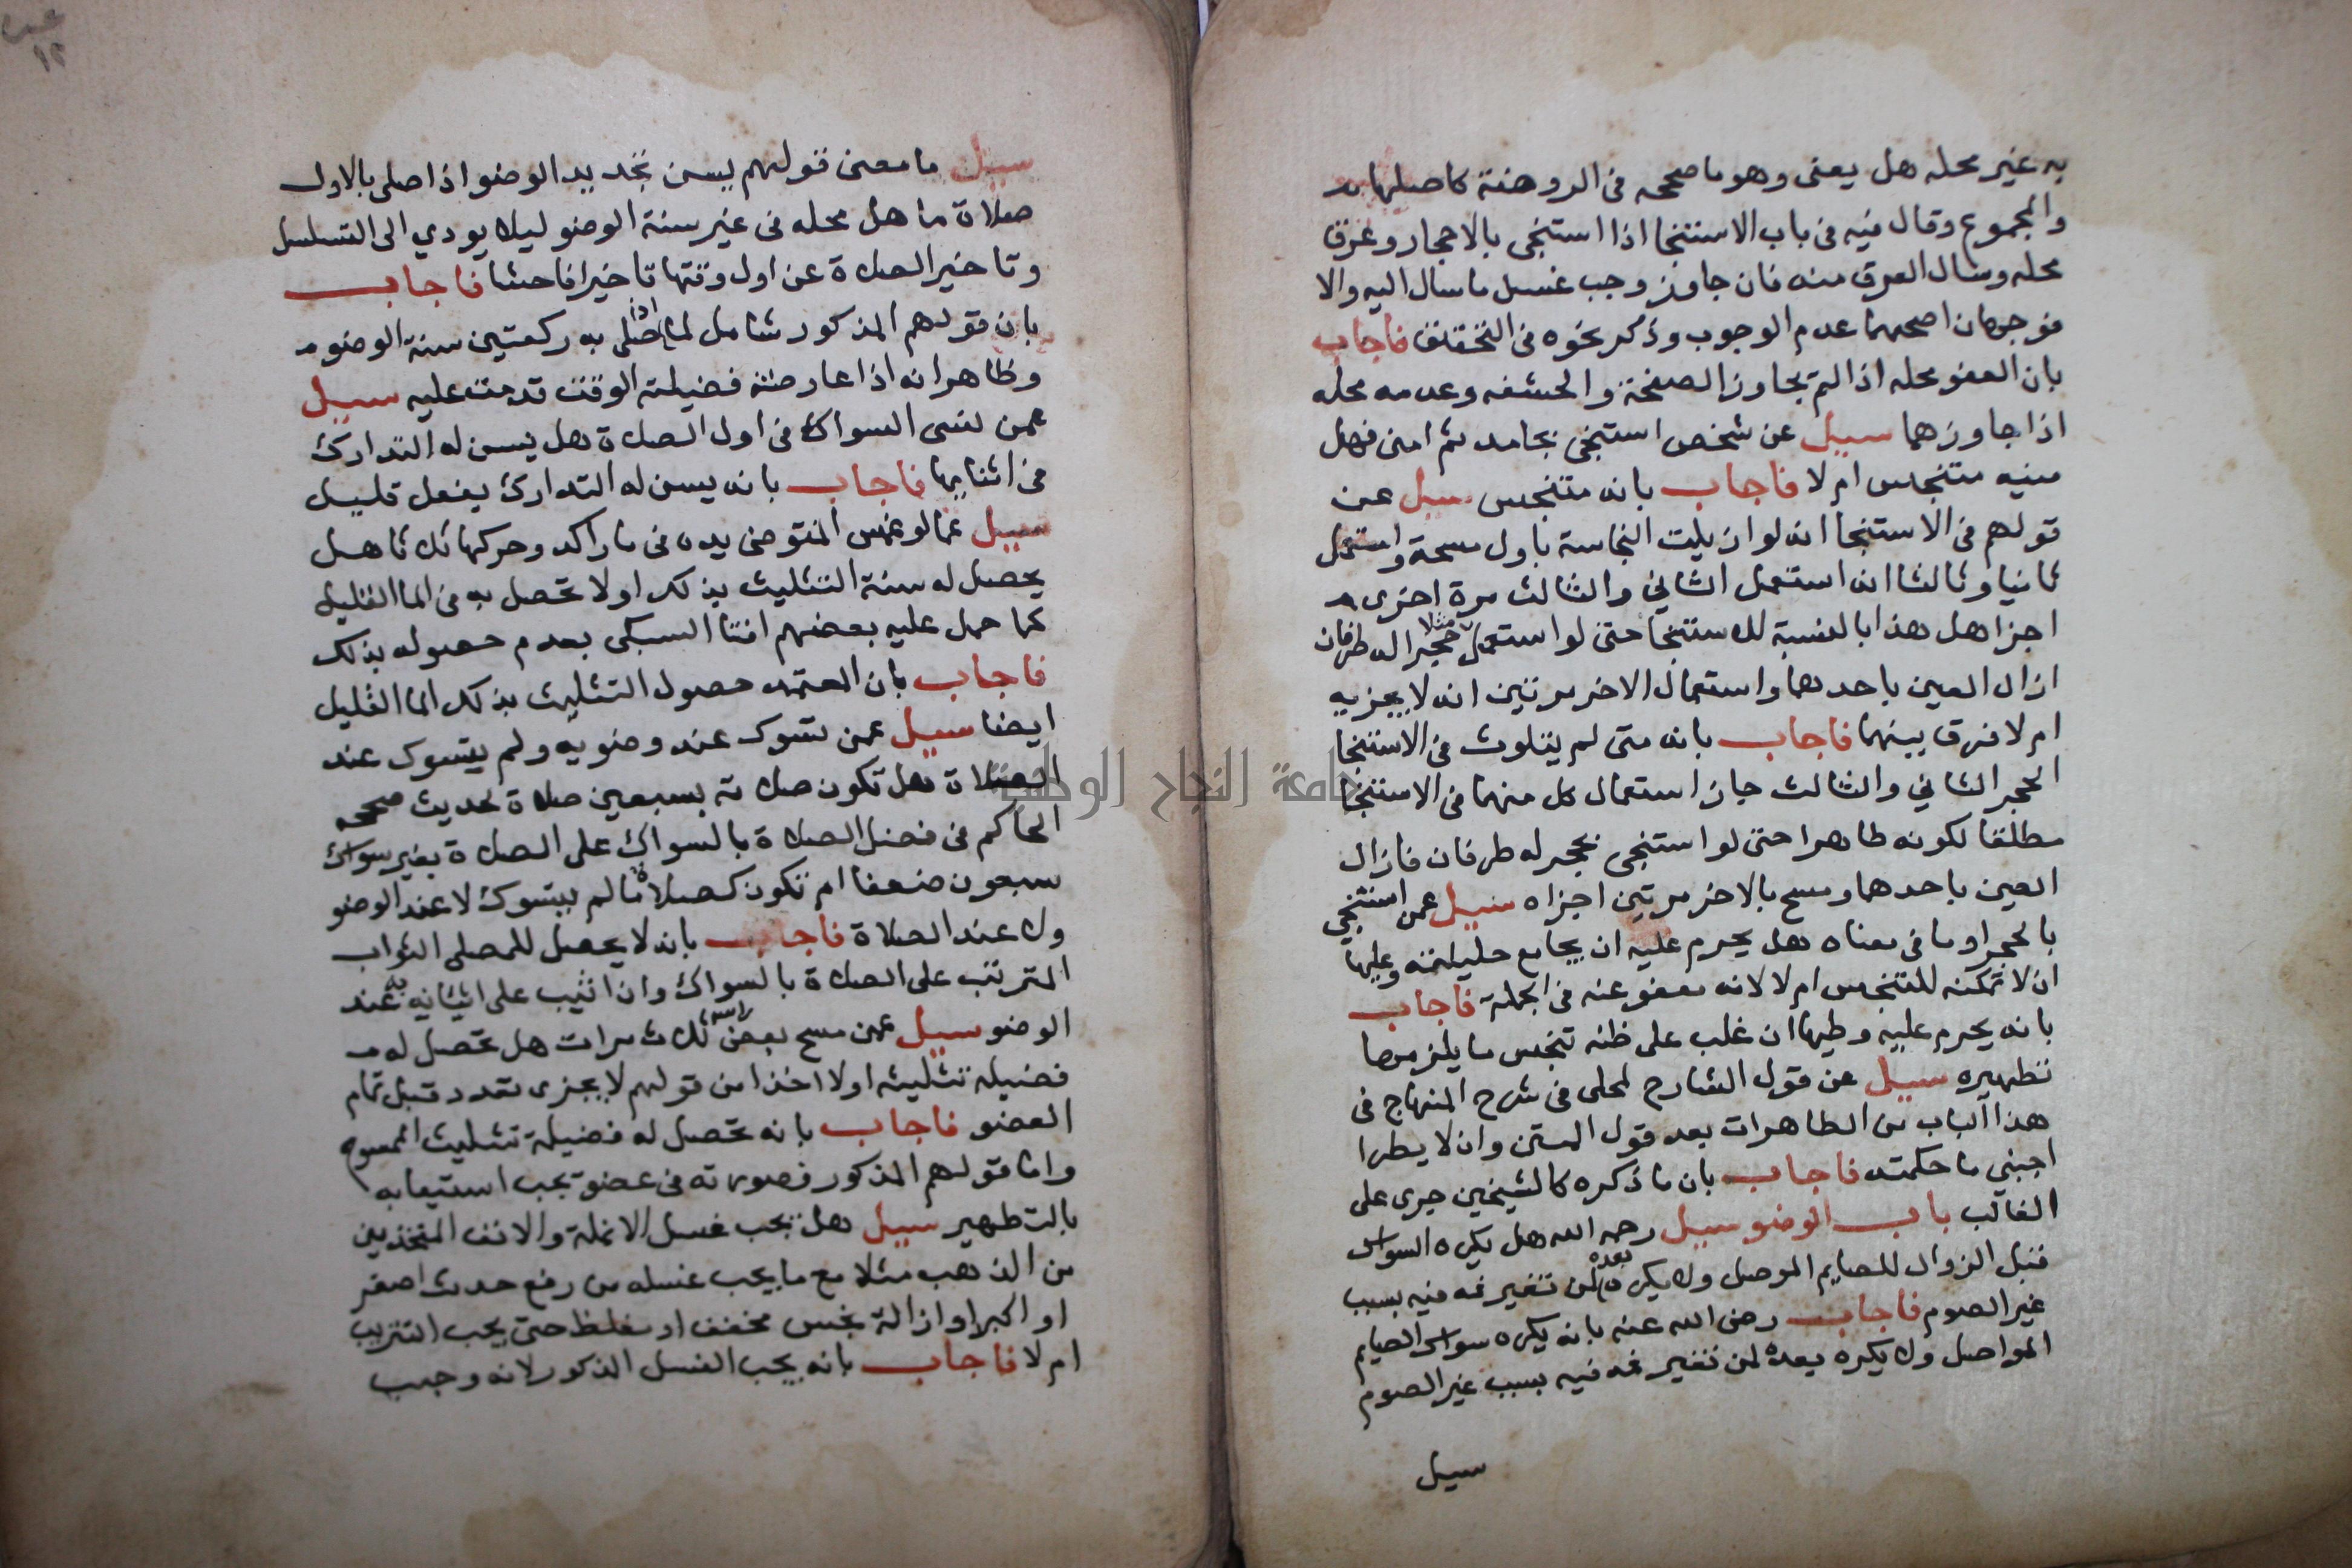 به غير محله هل يعفى وهو ما صححه في الروضة كاصلها
والمجموع وقال فيه في باب الاستنجا اذا استنجى بالاحجار وعرق
محله وسال العرق منه فان جاوز وجب غسل ما سال اليه والا
فوجهان اصحهما عدم الوجوب وذكر نحوه في التحقيق فاجاب
بان العفو محله اذا لم يجاوز الصفحة والحشفه وعدمه محله
اذا جاوزهما سيل عن شخص استنجى بجامد ثم امنى فهل
منيه متنجس ام لا فاجاب بانه متنجس سيل عن
قولهم في الاستنجا انه لو ازيلت النجاسة باول مسحة واستعمل
ثانيا وثالثا انه استعمل الثاني والثالث مرة اخرى
اجزا هل هذا بالنسبة للاستنجا حتى لو استعمل مثلا حجرا له طرفان
ازال العين باحدهما واستعمال الاخر مرتين انه لا يجزيه
ام لا فرق بينهما فاجاب بانه متى لم يتلوث في الاستنجا
الحجر الثاني والثالث جاز استعمال كل منهما في الاستنجا
مطلقا لكونه طاهرا حتى لو استنجى بحجر له طرفان فازال
العين باحدهما ومسح بالاخر مرتين اجزاه سيل عمن استنجى
بالحجر او ما في معناه هل يحرم عليه ان يجامع حليلته وعليها
ان لا تمكنه للتنجس ام لا لانه معفو عنه في الجملة فاجاب
بانه يحرم عليه وطيها ان غلب على ظنه تنجس ما يلزمها
تطهيره سيل عن قول الشارح المحلى في شرح المنهاج في
هذا الباب من الطاهرات بعد قول المتن وان لا يطرا
اجنبي ما حكمته فاجاب بان ما ذكره كالشيخين جرى على
الغالب باب الوضو سيل رحمه الله هل يكره السواك
قبل الزوال للصايم الموصل ولا يكره بعده لمن تغير فمه فيه بسبب
غير الصوم فاجاب رضى الله عنه بانه يكره سواك الصايم
المواصل ولا يكره بعده لمن تغير فمه فيه بسبب غير الصوم
سيل
سيل ما معنى قولهم يسن تجديد الوضو اذا صلى بالاول
صلاة ما هل محله في غير سنة الوضو ليلا يودي الى التسلسل
وتاخير الصلاة عن اول وقتها تاخيرا فاحشا فاجاب
بان قولهم المذكور شامل لما اذا صلى به ركعتين سنة الوضو
وظاهر انه اذا عارضته فضيلة الوقت قدمت عليه سيل
عمن نسى السواك في اول الصلاة هل يسن له التدارك
في اثنايها فاجاب بانه يسن له التدارك بفعل قليل
سيل عما لو غمس المتوضى يده في ما راكد وحركها ثلاثا هل
يحصل له سنة التثليث بذلك او لا تحصل به في الما القليل
كما حمل عليه بعضهم افتا السبكى بعدم حصوله بذلك
فاجاب بان المعتمد حصول التثليث بذلك الما القليل
ايضا سيل عمن تسوك عند وضويه ولم يتسوك عند
الصلاة هل تكون صلاته بسبعين صلاة لحديث صححه
الحاكم في فضل الصلاة بالسواك على الصلاة بغير سواك
سبعون ضعفا ام تكون كصلاة من لم يتسوك لا عند الوضو
ولا عند الصلاة فاجاب بانه لا يحصل للمصلى الثواب
المترتب على الصلاة بالسواك وان اثيب على اتيانه به عند
الوضو سيل عمن مسح بعض راسه ثلاث مرات هل تحصل له
فضيلة تثليثه او لا اخذا من قولهم لا يجزى تعدد قبل تمام
العضو فاجاب بانه تحصل له فضيلة تثليث الممسوح
واما قولهم المذكور فصورته في عضو يجب استيعابه
بالتطهير سيل هل يجب غسل الانملة والانف المتخذين
من الذهب مثلا مع ما يجب غسله من رفع حدث اصغر
او اكبر او ازالة نجس مخفف او مغلظ حتى يجب التتريب
ام لا فاجاب بانه يجب الغسل المذكور لانه وجب
جامعة النجاح الوطنية